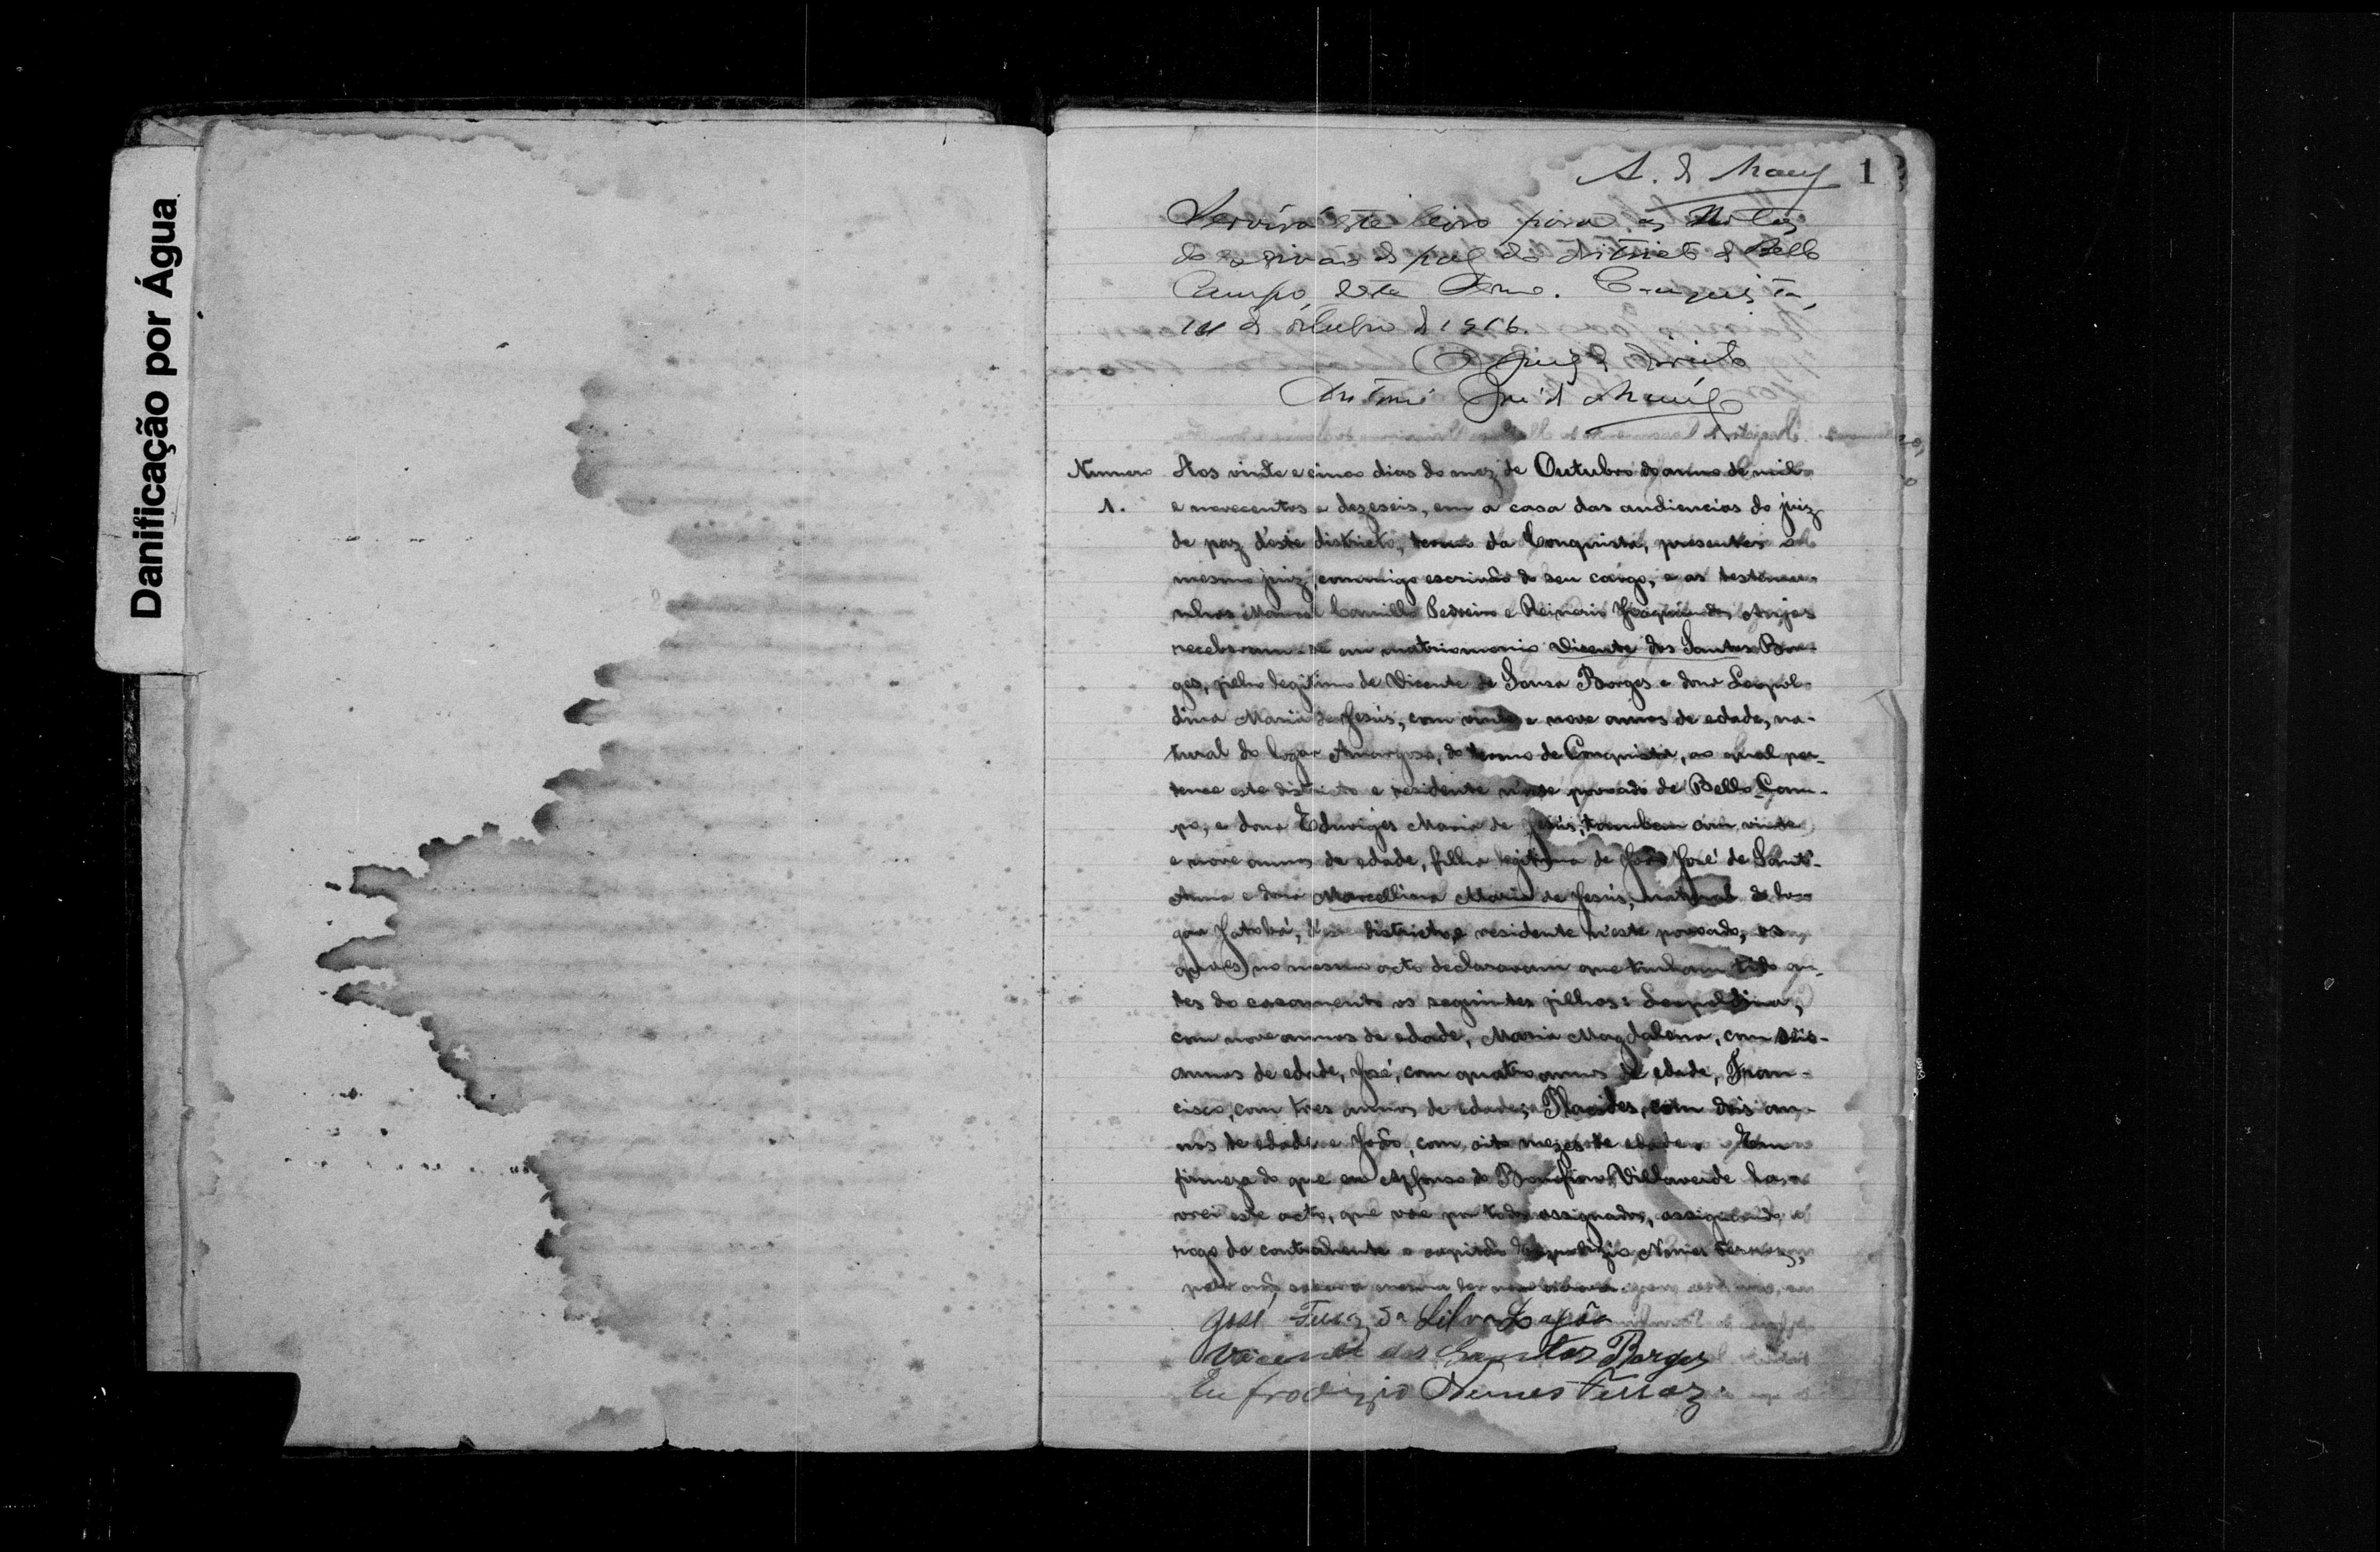 Danificação por Água
A. de
1
Servirá este livro para as Notas
do escrivão de paz do districto de Bello
Campo, deste Termo. Conquista,
de outubro de 1916.
O Juiz de Direito
Antonio José de
Numero
1.
Aos vinte e cinco dias do mez de Outubro do anno de mil
e novecentos e dezeseis, em a casa das audiencias do juiz
de paz d'este districto, termo da Conquista, presentes o
mesmo juiz, commigo escrivão do seu cargo, e as testemu-
nhas Manoel Camillo Pedreiro e
receberam-se em matrimonio Vicente dos Santos Bor-
ges, filho legitimo de Vicente de Sousa Borges e dona Leopol-
dina Maria de Jesús, com vinte e nove annos de edade, na-
tural do logar Amargosa, do termo de Conquista, ao qual per-
tence este districto e residente n'este povoado de Bello Cam-
po, e dona Eduviges Maria de Jesús, tambem com vinte
e nove annos de edade, filha legitima de João José de Sant'
Anna e dona Marcelliana Maria de Jesús, natural do lo-
gar Jatobá, d'este districto, e residente n'este povoado, os
quaes no mesmo acto declararam que tinham tido an-
tes do casamento os seguintes filhos: Leopoldina,
com nove annos de edade, Maria Magdalena, com seis
annos de edade, José, com quatro annos de edade, Fran-
cisco, com tres annos de edade, com dois an-
nos de edade e João, com oito mezes de edade. Em
firmeza do que eu Affonso do Bomfim Villaverde la-
vrei este acto, que vae por todos assignados, assignando a
rogo da contrahente o capitão Eufrodizio Nunes Ferraz,
José Ferraz da Silva
Vicente dos Santos Borges
Eufrodizio Nunes Ferraz.